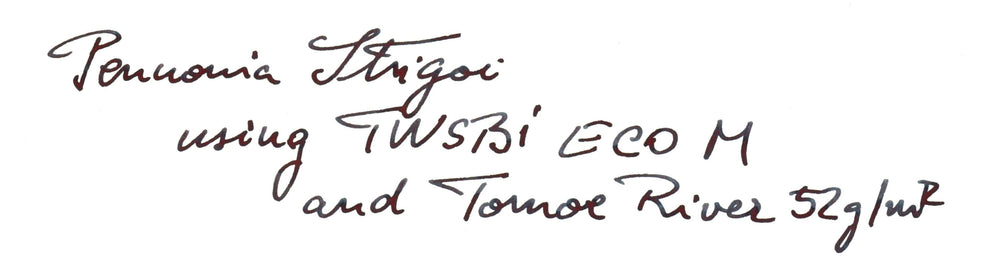 Pennonia Strigoi
using TWSBi ECO M
and Tomoe River 52g/m²